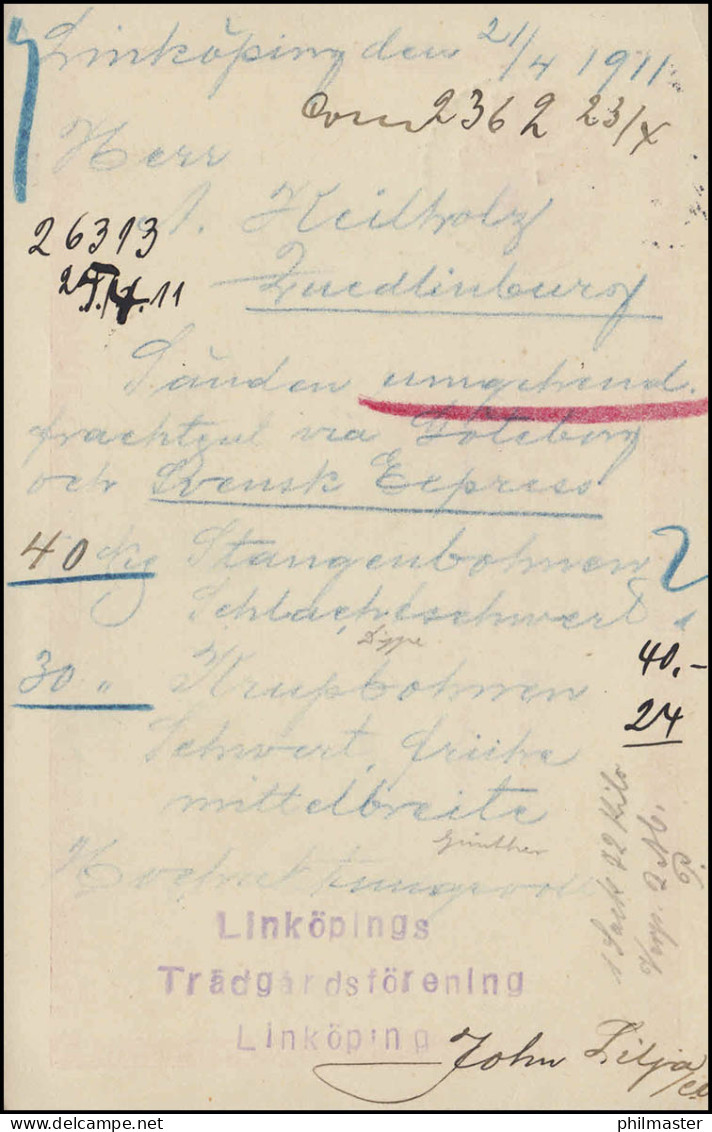 Linköping den 21/4 1911
2362 23/4
Herr
A. Keilholz
26313
Quedlinburg
.11
Sänden umgehend
frachtgut via Göteborg
och Svensk Express
40 Kg Stangenbohnen
Schlachtschwert
Dippe
40.-
30 " Krupbohnen
24
Schwert, frühe
mittelbreite
Günther
Hochachtungsvoll
1 Sack 72 Kilo
Verp. 2 M.
Linköpings
Trädgårdsförening
Linköping
John Lilja
philmaster